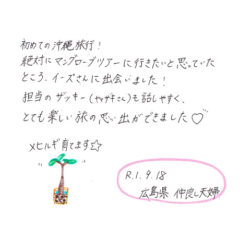 初めての沖縄旅行!
絶対にマングローブツアーに行きたいと思っていた
ところ、イーズさんに出会いました!
担当のザッキー(ヤマザキさん)も話しやすく、
とても楽しい旅の思い出ができました♡
メヒルギ育てます☆
R.1.9.18
広島県 仲良し夫婦